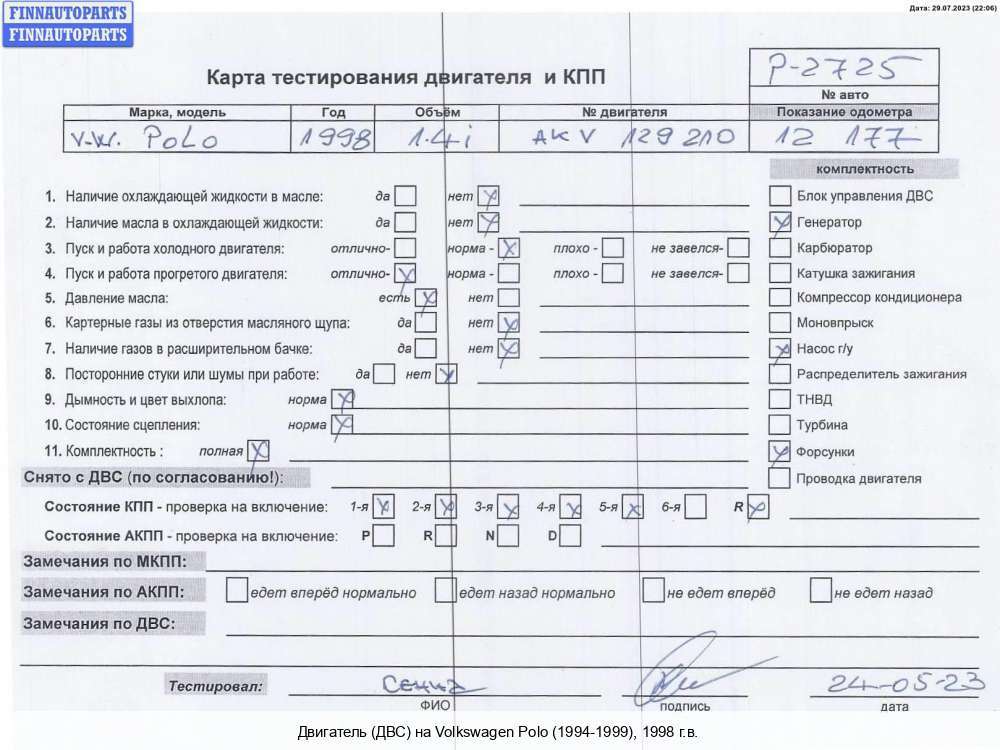 FINNAUTOPARTS
FINNAUTOPARTS
Дата: 29.07.2023 (22:06)
Карта тестирования двигателя и КПП
P-2725
№ авто
Марка, модель Год Объём № двигателя Показание одометра
V.W. POLO 1998 1.4i AKV 129210 12 177
комплектность
1. Наличие охлаждающей жидкости в масле: да нет X Блок управления ДВС
2. Наличие масла в охлаждающей жидкости: да нет X X Генератор
3. Пуск и работа холодного двигателя: отлично- норма - X плохо - не завелся- Карбюратор
4. Пуск и работа прогретого двигателя: отлично- X норма - плохо - не завелся- Катушка зажигания
5. Давление масла: есть X нет Компрессор кондиционера
6. Картерные газы из отверстия масляного щупа: да нет X Моновпрыск
7. Наличие газов в расширительном бачке: да нет X X Насос г/у
8. Посторонние стуки или шумы при работе: да нет X Распределитель зажигания
9. Дымность и цвет выхлопа: норма X ТНВД
10. Состояние сцепления: норма X Турбина
11. Комплектность : полная X X Форсунки
Снято с ДВС (по согласованию!): Проводка двигателя
Состояние КПП - проверка на включение: 1-я X 2-я X 3-я X 4-я X 5-я X 6-я R X
Состояние АКПП - проверка на включение: P R N D
Замечания по МКПП:
Замечания по АКПП: едет вперёд нормально едет назад нормально не едет вперёд не едет назад
Замечания по ДВС:
Тестировал: 24-05-23
ФИО подпись дата
Двигатель (ДВС) на Volkswagen Polo (1994-1999), 1998 г.в.